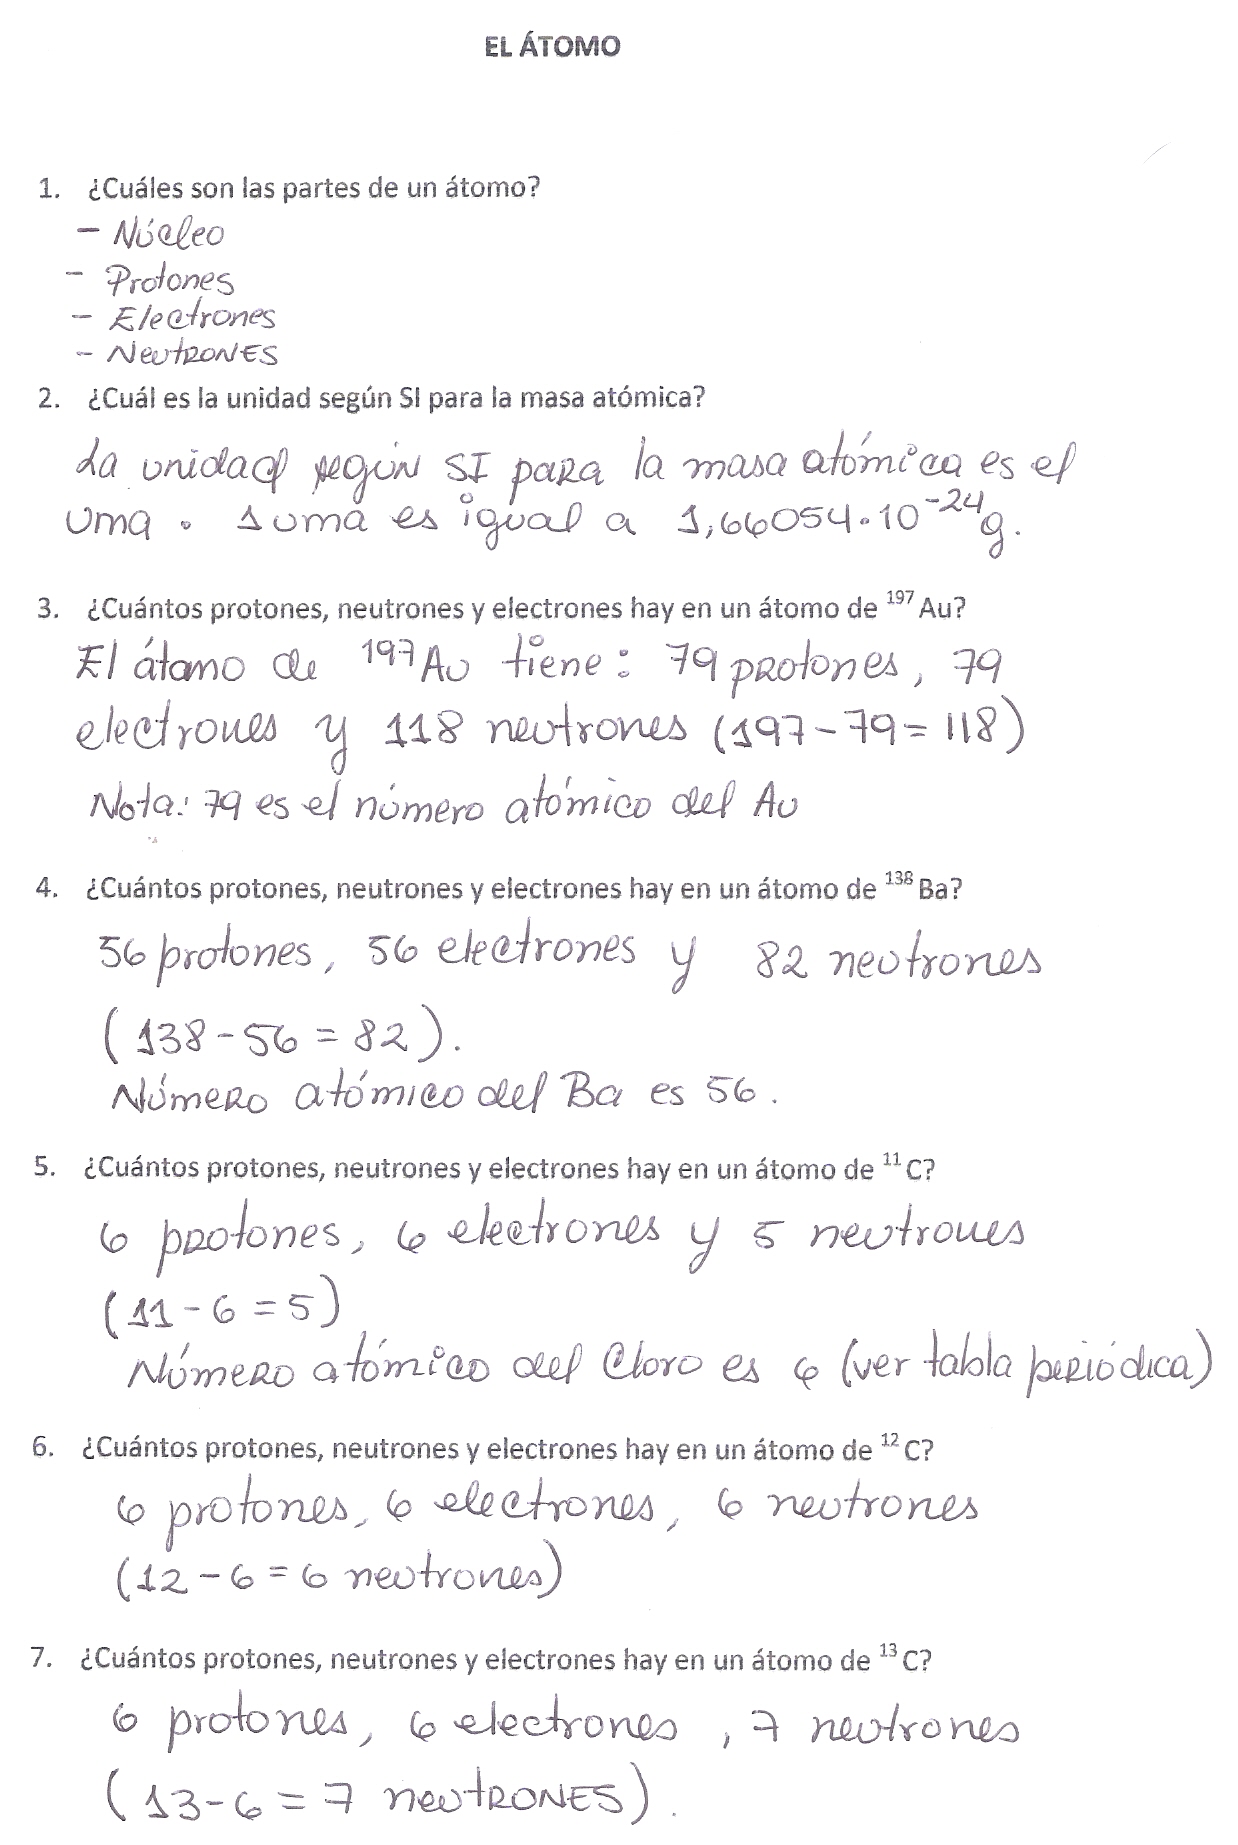 EL ÁTOMO
1. ¿Cuáles son las partes de un átomo?
- Núcleo
- Protones
- Electrones
- Neutrones
2. ¿Cuál es la unidad según SI para la masa atómica?
La unidad según SI para la masa atómica es el
uma. 1 uma es igual a 1,66054·10⁻²⁴g.
3. ¿Cuántos protones, neutrones y electrones hay en un átomo de ¹⁹⁷Au?
El átomo de ¹⁹⁷Au tiene: 79 protones, 79
electrones y 118 neutrones (197-79=118)
Nota: 79 es el número atómico del Au
4. ¿Cuántos protones, neutrones y electrones hay en un átomo de ¹³⁸Ba?
56 protones, 56 electrones y 82 neutrones
(138-56=82).
Número atómico del Ba es 56.
5. ¿Cuántos protones, neutrones y electrones hay en un átomo de ¹¹C?
6 protones, 6 electrones y 5 neutrones
(11-6=5)
Número atómico del Cloro es 6 (ver tabla periódica)
6. ¿Cuántos protones, neutrones y electrones hay en un átomo de ¹²C?
6 protones, 6 electrones, 6 neutrones
(12-6=6 neutrones)
7. ¿Cuántos protones, neutrones y electrones hay en un átomo de ¹³C?
6 protones, 6 electrones, 7 neutrones
(13-6=7 neutrones).